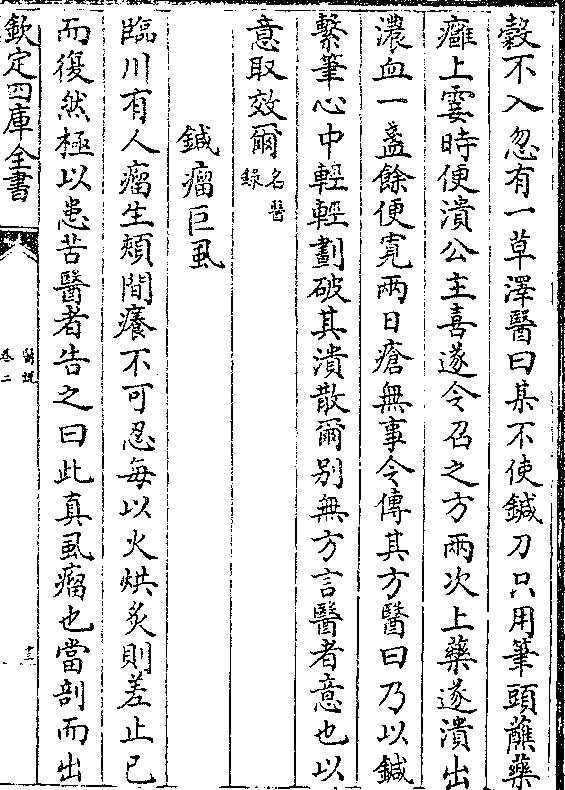 穀不入忽有一草澤醫曰某不使鍼刀只用筆頭蘸藥
癰上霎時便潰公主喜遂令召之方兩次上藥遂潰出
濃血一盞餘便寬兩日瘡無事令傳其方醫曰乃以鍼
繫筆心中輕輕劃破其潰散爾别無方言醫者意也以
意取效爾名醫錄
鍼瘤巨虱
臨川有人瘤生頰間癢不可忍每以火烘炙則差止已
而復然極以患苦醫者告之曰此真虱瘤也當剖而出
欽定四庫全書
醫説
卷二
十三